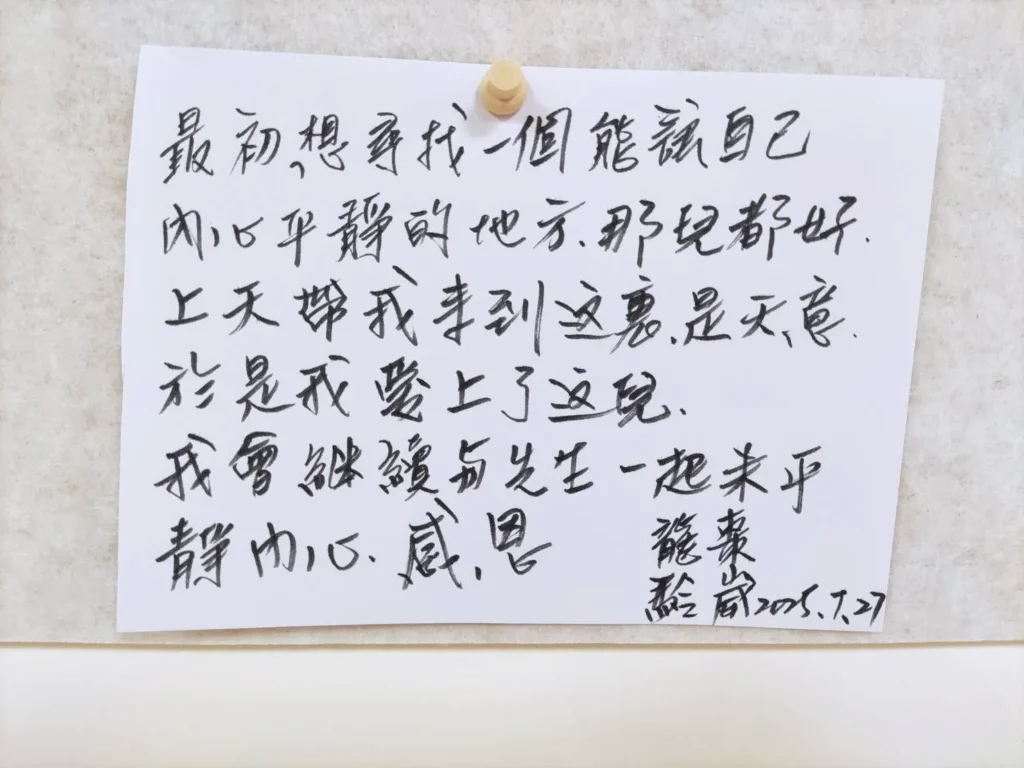 最初,想寻找一個能讓自己
內心平靜的地方.那兒都好.
上天帶我来到这裏,是天意.
於是我愛上了这兒.
我會継續与先生一起来平
靜內心.感恩
龍
崴2025.7.27